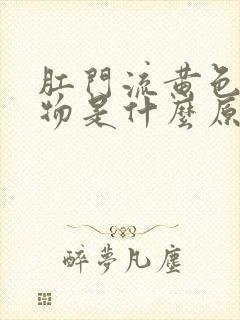 肛門流黃色
物是什麼原
醉夢凡塵